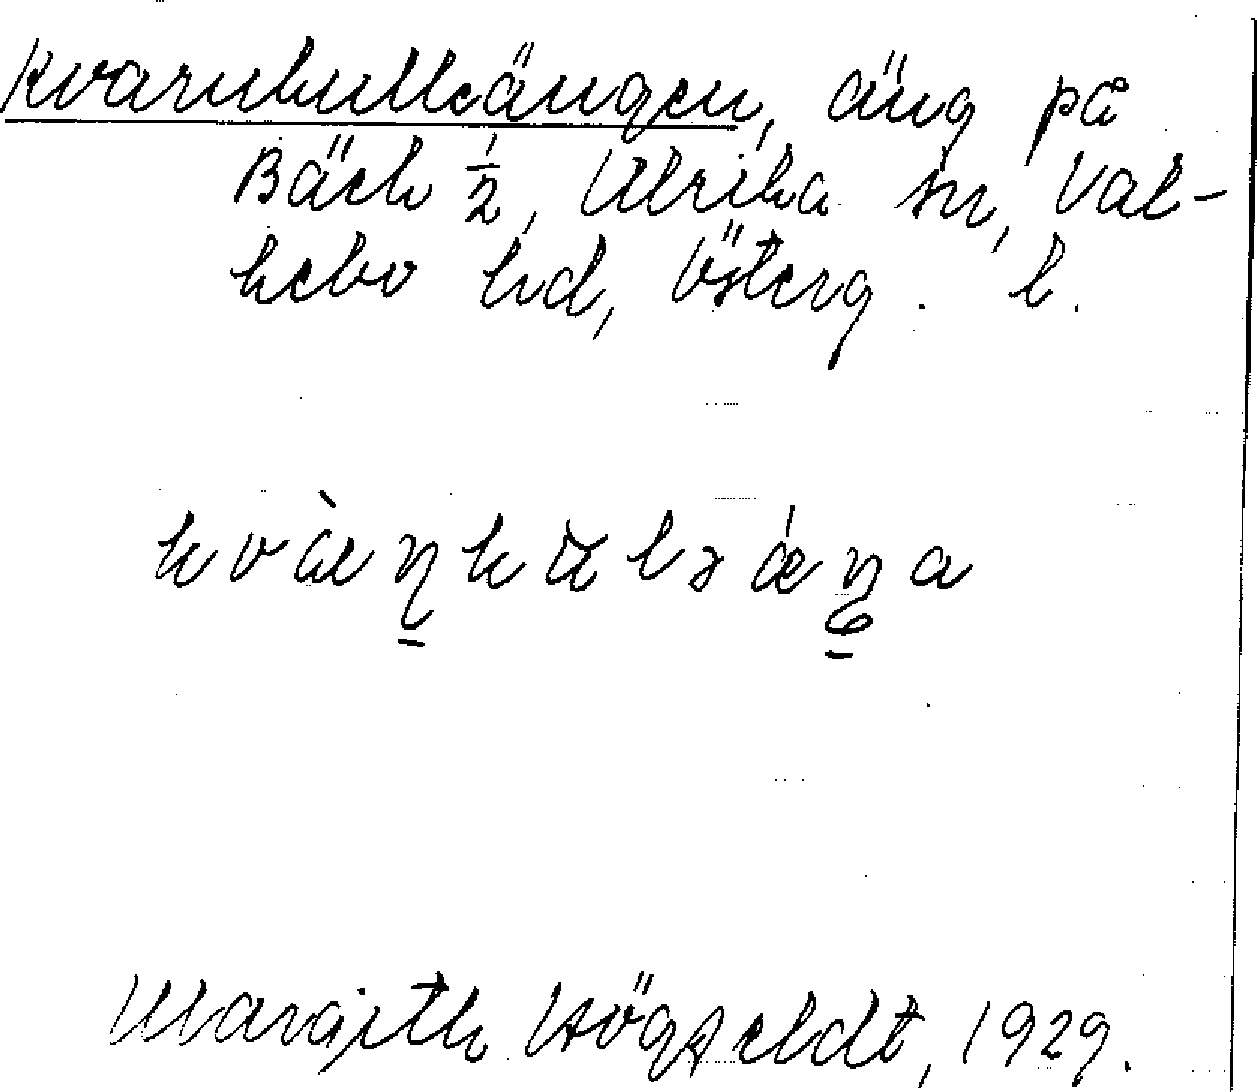 Kvarnkulleängen, äng på
Bäck ½, Ulrika sn, Val-
kebo hd, Österg. l.
kvæ̀ṉkuləǽŋa
Margith Högfeldt, 1929.